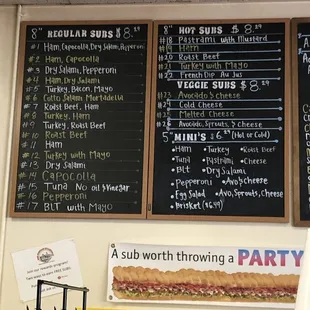 8" REGULAR SUBS $ 8.29
#1 Ham, Capocolla, Dry Salami, Pepperoni
#2 Ham, Capocolla
#3 Dry Salami, Pepperoni
#4 Ham, Dry Salami
#5 Turkey, Bacon, Mayo
#6 Cotto Salami Mortadella
#7 Ham, Roast Beef
#8 Turkey, Ham
#9 Turkey, Roast Beef
#10 Roast Beef
#11 Ham
#12 Turkey with Mayo
#13 Dry Salami
#14 Capocolla
#15 Tuna No oil & vinegar
#16 Pepperoni
#17 BLT with Mayo
8" HOT SUBS $ 8.29
#18 Pastrami with Mustard
#19 Ham
#20 Roast Beef
#21 Turkey with Mayo
#22 French Dip Au Jus
VEGGIE SUBS $ 8.29
#23 Avocado & Cheese
#24 Cold Cheese
#25 Melted Cheese
#26 Avocado, Sprouts, & Cheese
5" MINI'S $6.29 (Hot or Cold)
• Ham • Turkey • Roast Beef
• Tuna • Pastrami • Cheese
• BLT • Dry Salami
• Pepperoni • Avo & Cheese
• Egg Salad • Avo, Sprouts, Cheese
• Brisket ($6.99)
A sub worth throwing a PARTY